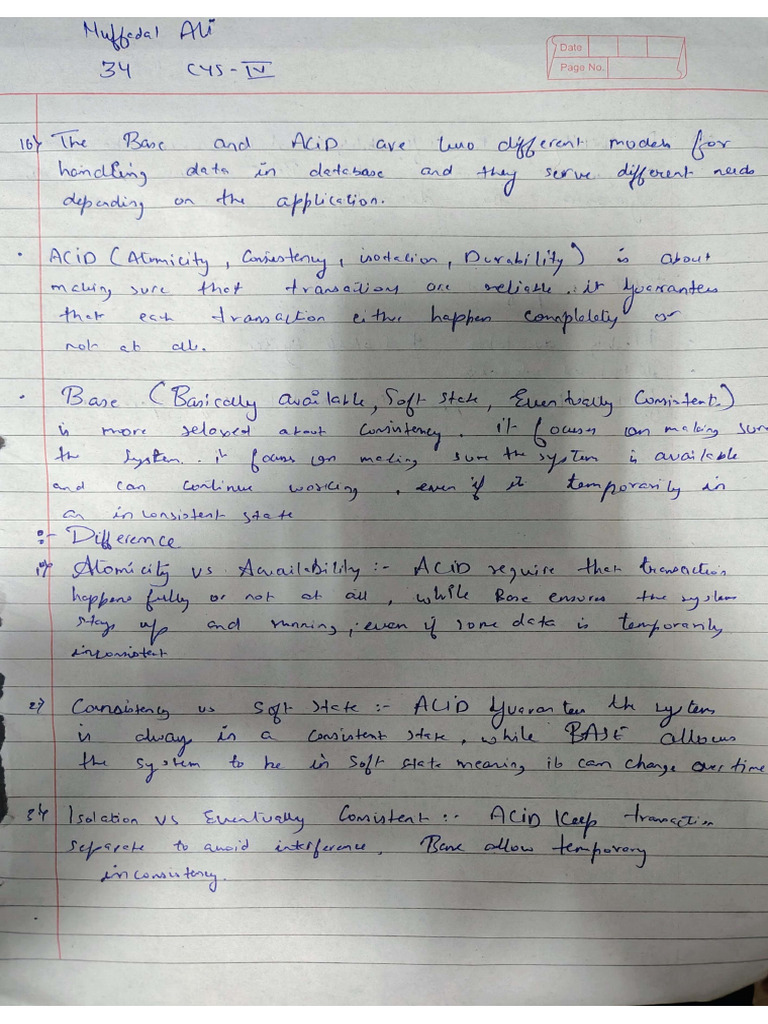 Muffadal Ali
34 CYS-IV
Date
Page No.
16) The Base and ACiD are two different models for
handling data in database and they serve different needs
depending on the application.
• ACiD (Atomicity, Consistency, isolation, Durability) is about
making sure that transactions are reliable. it guarantees
that each transaction either happen completely or
not at all.
• Base (Basically available, Soft state, Eventually Consistent)
is more relaxed about consistency. it focuses on making sure
the system. it focus on making sure the system is available
and can continue working, even if it temporarily in
an inconsistent state
:- Difference
1) Atomicity vs Availability :- ACiD require that transaction
happens fully or not at all, while Base ensures the system
stays up and running, even if some data is temporarily
inconsistent
2) Consistency vs Soft state :- ACiD guarantees the system
is always in a consistent state, while BASE allows
the system to be in soft state meaning it can change over time
3) Isolation vs Eventually Consistent :- ACiD Keep transaction
separate to avoid interference, Base allow temporary
inconsistency.